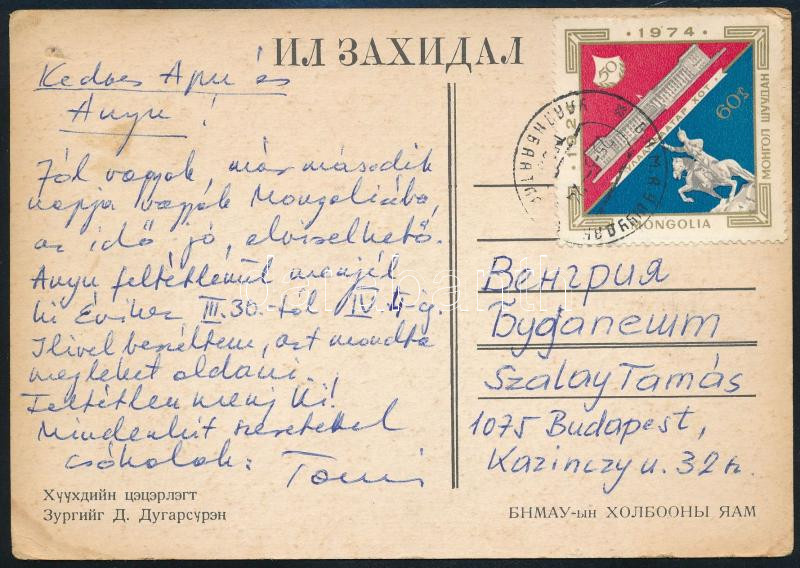 ИЛ ЗАХИДАЛ
Kedves Apu és
Anyu!
Jól vagyok, már második
napja vagyok Mongoliába,
az idő jó, elviselhető.
Anyu feltétlenül menjél
ki Évihez III.30.-tól IV.4-ig.
Ilivel beszéltem, azt mondta
meglehet oldani.
Feltétlen menj ki!
Mindenkit szeretettel
csókolok:
Tomi
Хүүхдийн цэцэрлэгт
Зургийг Д. Дугарсүрэн
1974
50
1924
УЛААНБААТАР ХОТ
60
МОНГОЛ ШУУДАН
MONGOLIA
Венгрия
Будапешт
Szalay Tamás
1075 Budapest,
Kazinczy u. 32
БНМАУ-ын ХОЛБООНЫ ЯАМ